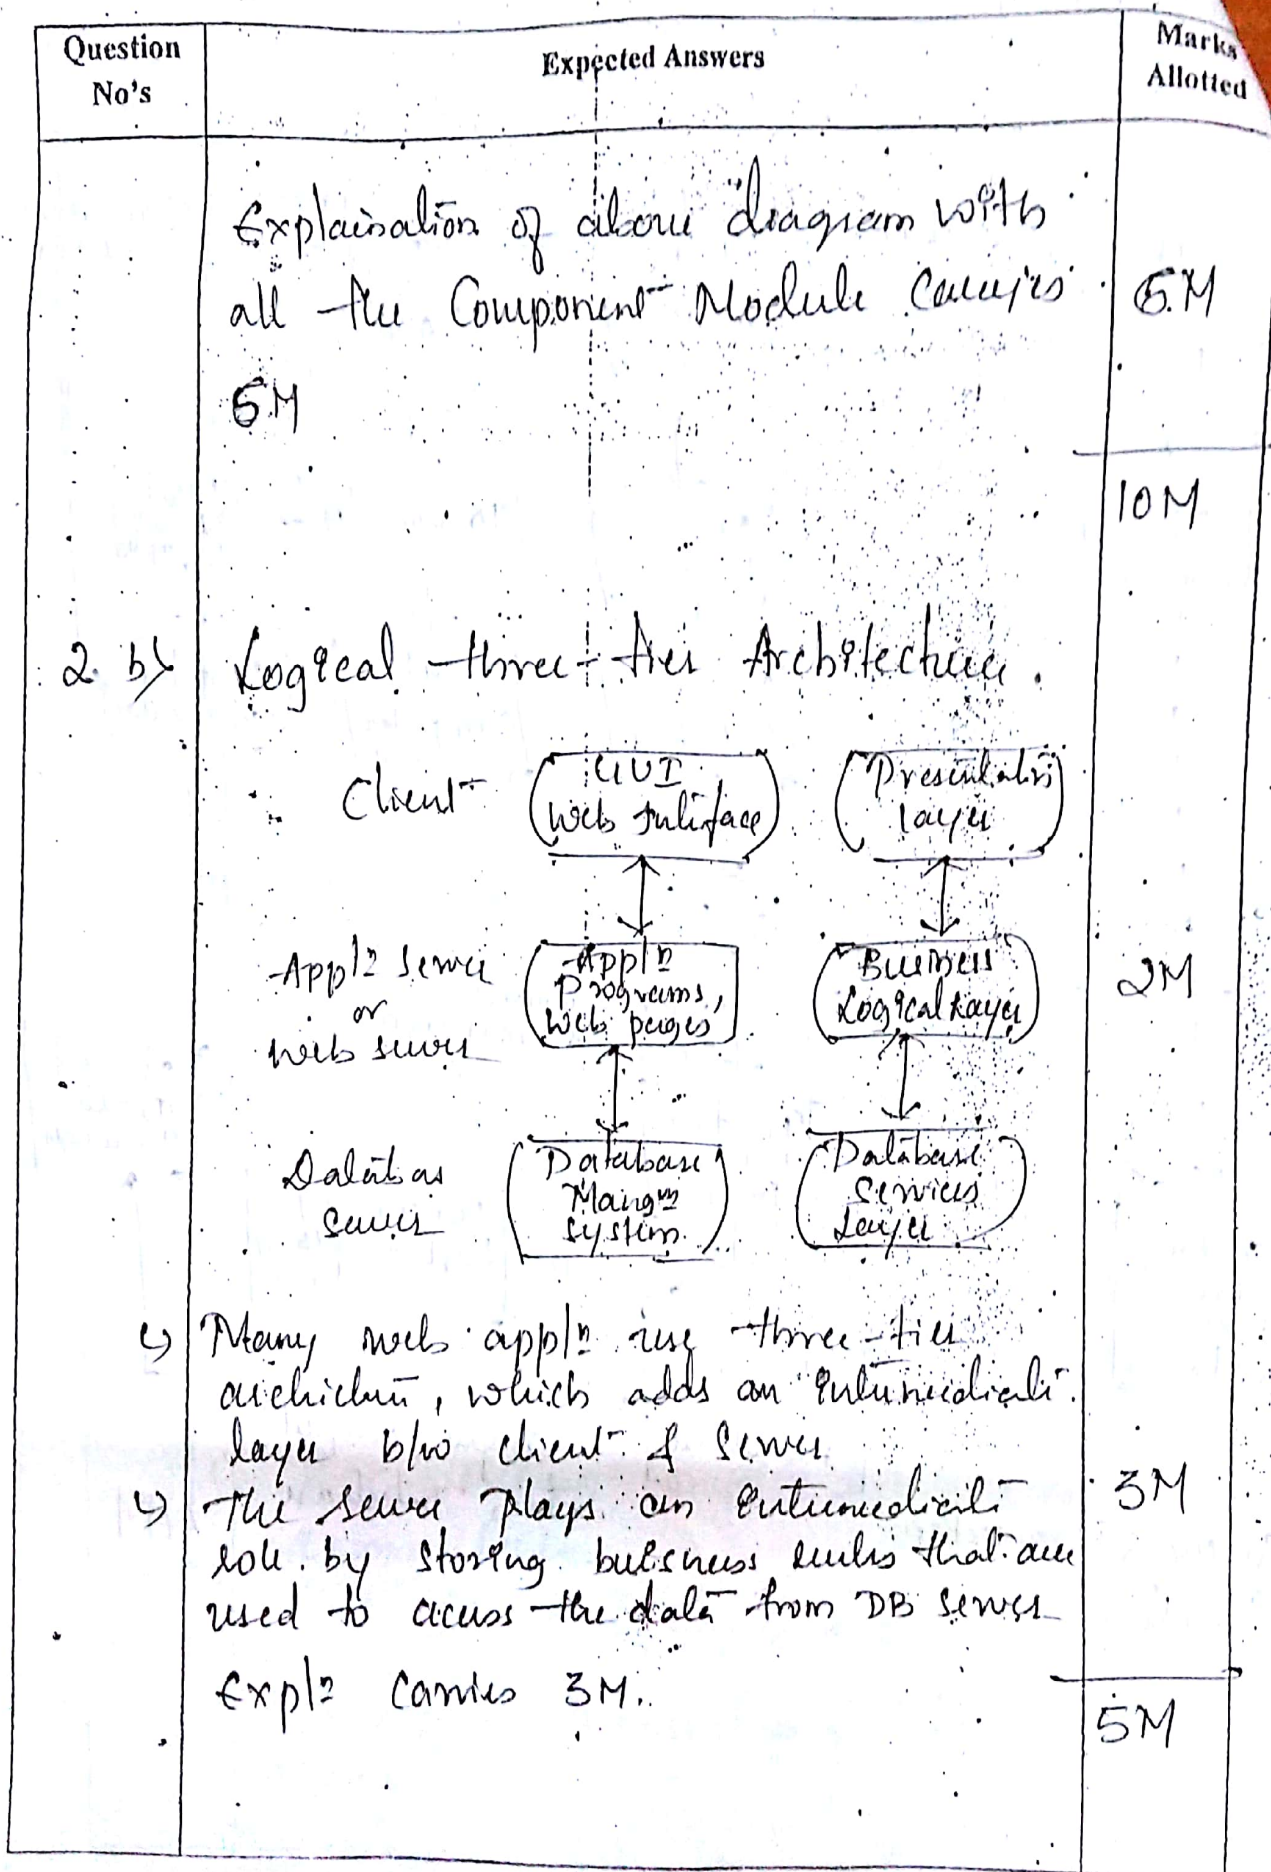 Question No's
Expected Answers
Marks Allotted
Explaination of above diagram with
all the Component Module Carries
5M
5M
10M
2. b) Logical three-tier Architecture.
Client
GUI
Web Interface
Presentation
layer
Appln Server
or
web server
Appln
Programs,
Web pages
Business
Logical Layer
2M
Databas
Server
Database
Mangm
System
Database
Services
Layer
Many web appln use three-tier
architecture, which adds an intermediate
layer b/w client & Server
The server plays an intermediate
role by storing buisness rules that are
used to acess the data from DB server
3M
Expln Carries 3M.
5M